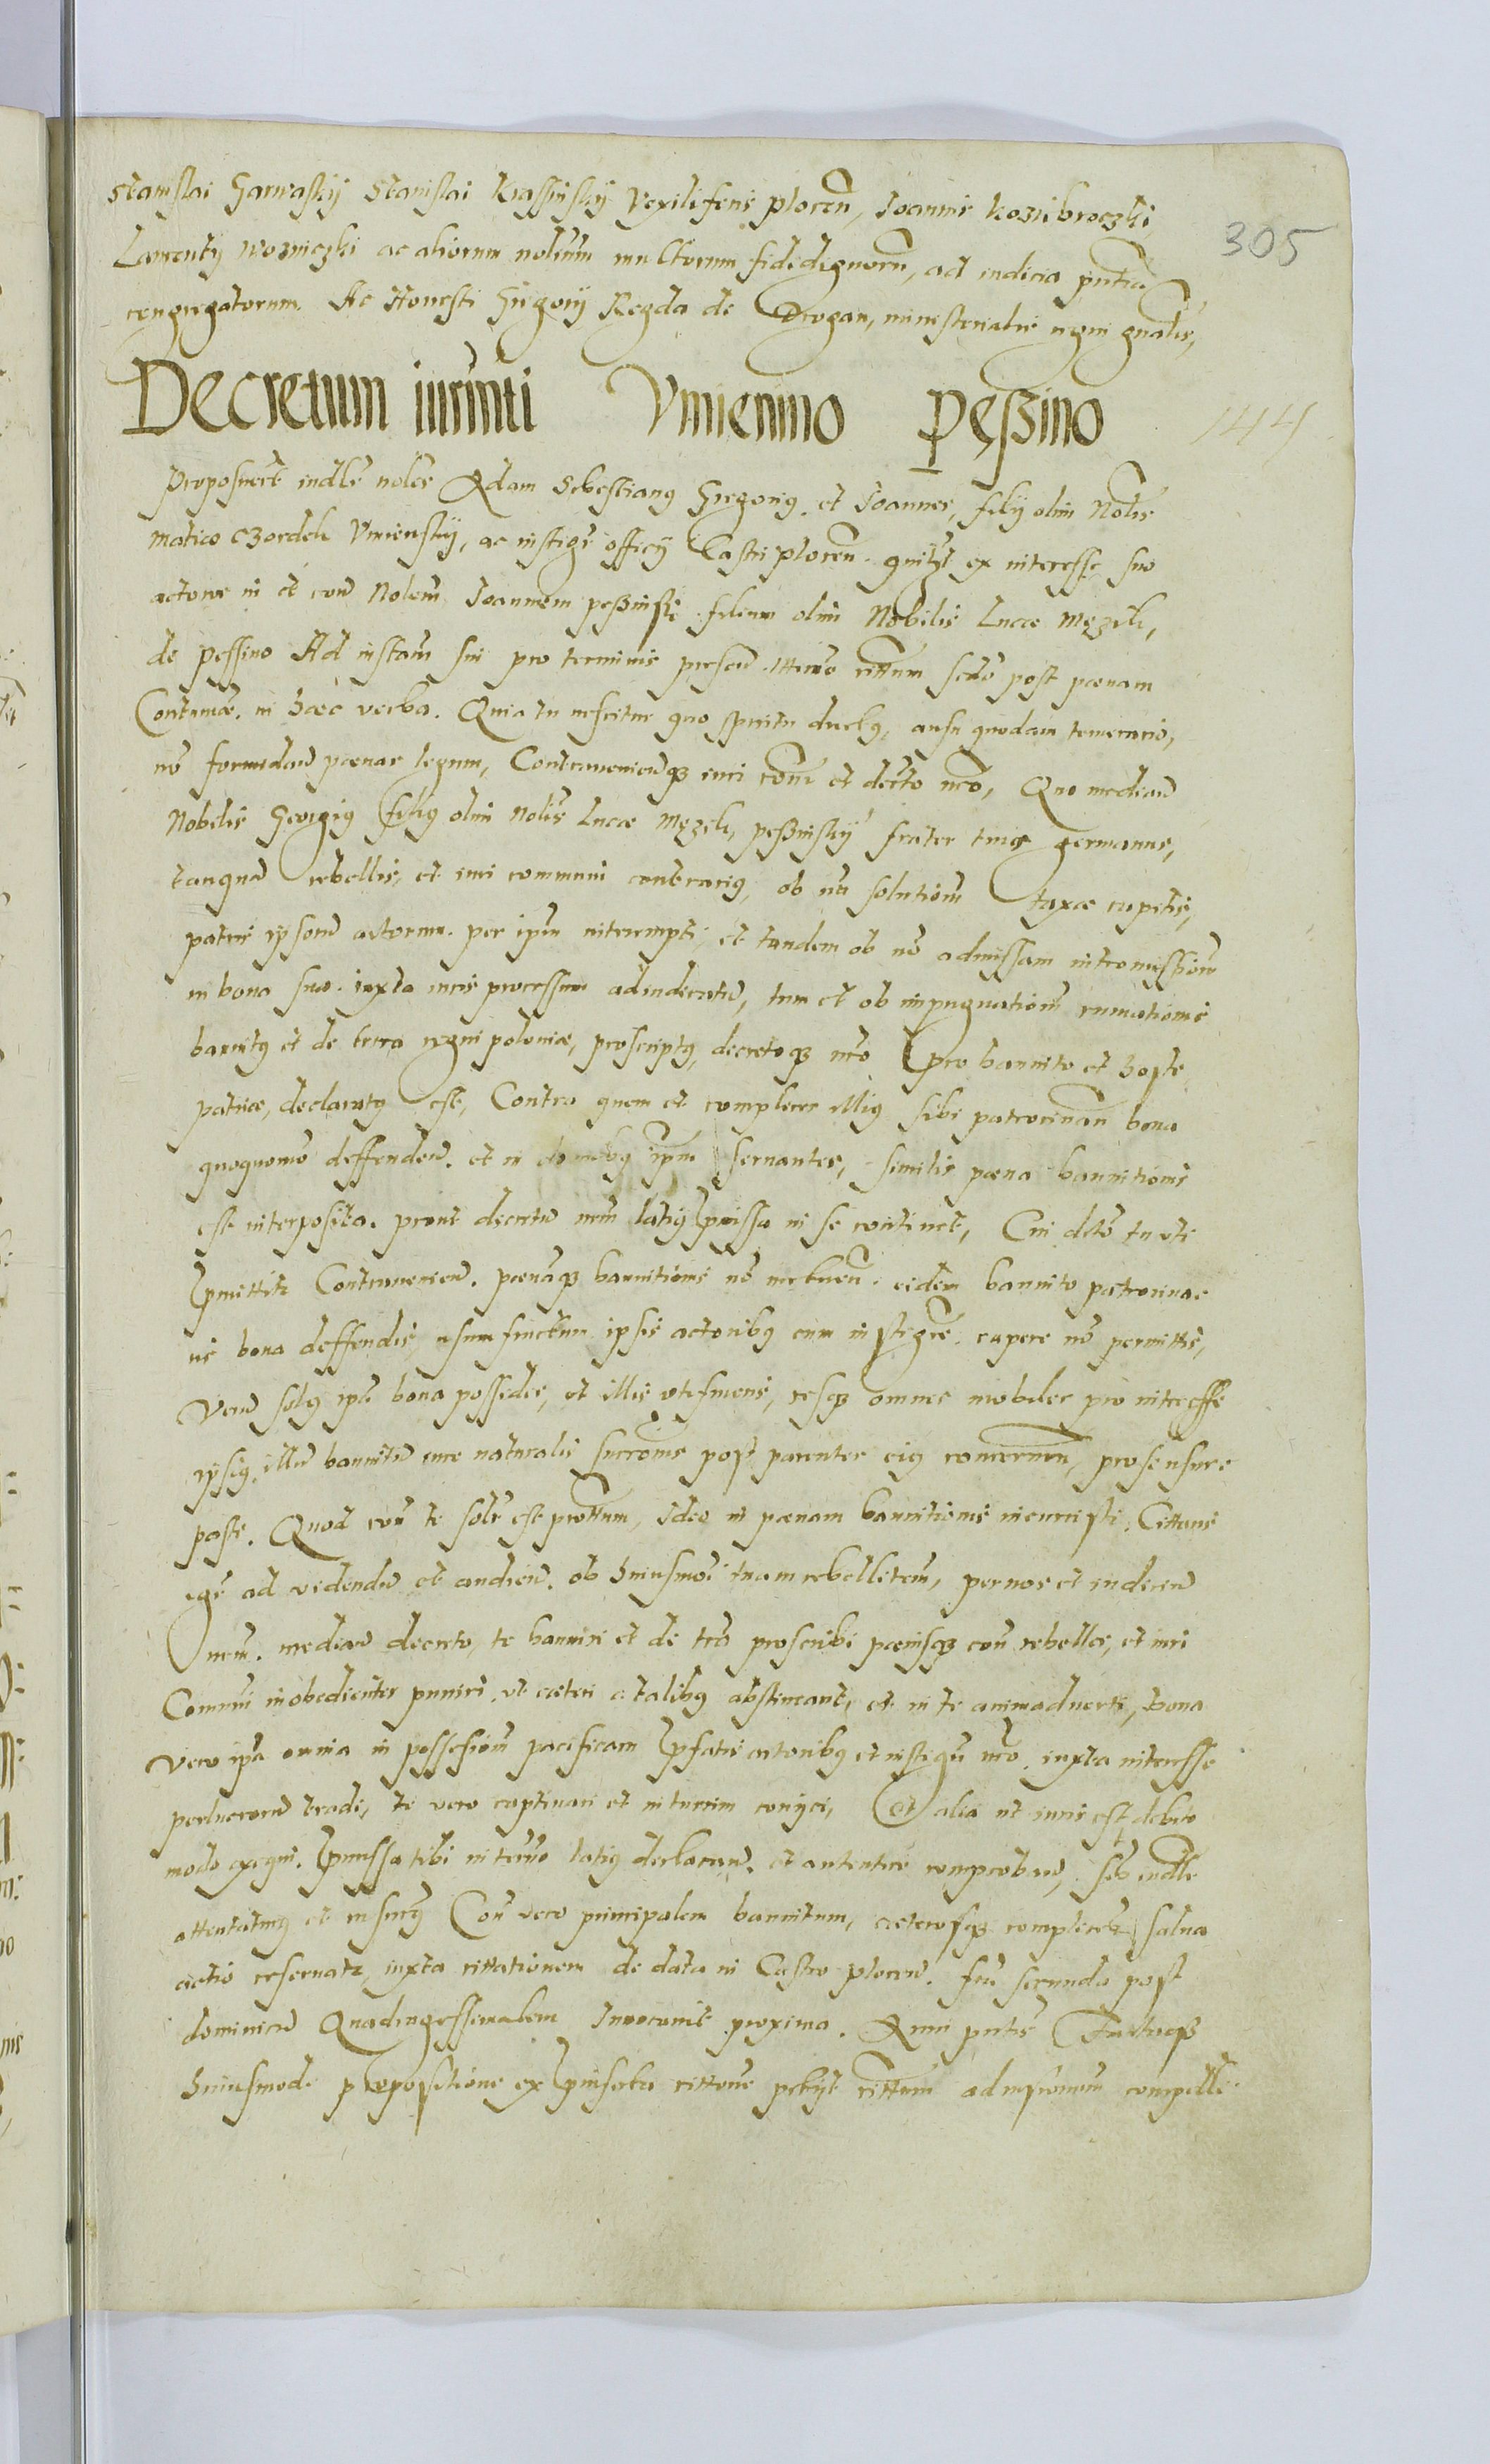 Stanislai Garwaskij Stanislai Krassinskij Vexiliferis plocen, Joannis Kozibroczki
305
Laurentij Wozniczki ac aliorum nolium multorum fidedignorū, ad iudicia pntia
congregatorum. Ac Honesti Gregorij Regda de Drogan, ministerialis regni gnalis,
Decretum iurīmti Vmienino Peßino
144
Proposuert iudle noles Adam Sebestianus Gregorius. et Joannes, filij olim Nolis
Matiae Czordek Vmienskij, ac instigr officij Castri plocen. quilzt ex interesse suo
actores in et con Nolem Joannem peßinski filium olim Nobilis Lucae Męzik,
de pessino Ad instam sui pro terminis presen. cittum secūs post paenam
Contumac. in haec verba. Quia tu nescitur quo spiritu ductus, ausu quodam temerario,
nō formidan paenas legum, Contraveniēnqz iuri comi et decto nro, Quo median
Nobilis Georgius filius olim Nolis Lucae Męzik, peßinskij frater tuus germanus,
tanquā rebellis, et iuri communi contrarius, ob nō solutionem taxae capitis,
patris ipsorū actorum. per ipm interempti, et tandem ob nō admissam intromissionē
in bona sua. iuxta iuris processum adiudicatā, tum et ob impugnationē rumationis
bannitus et de terra regni poloniae, proscriptus, decretoqz nro pro bannito et hoste
patriae, declaratus est, Contra quem et complices illius sibi patrocinan bona
quoquomō deffenden. et in domibus ipm servantes, similis paena bannitionis
est interposita. prout decretū nrm latius pmissa in se continet, Cui dcto tu uti
pmittit Contravenien. paenasqz bannitionis nō metuen. eidem bannito patrocinas
eius bona deffendis, usumfructum ipsis actoribus cum instigre. capere nō permittis,
Verū solus ipa bona possides, et illis uti frueris, resqz omnes mobiles pro interesse
ipsius. illū bannitū iure naturalis succronis post parentes eius concernen, pro se usure
paste. Quod con te solr est prottum, Ideo in paenam bannitionis incurristi. Cittaris
igr ad videndū et audien. ob huiusmoi tuam rebellitem, per nos et iudicium
nrm. median decreto, te banniri et de tra proscribi paenisqz con rebelles, et iuri
Commi inobedientes puniri, ut caeteri a talibus abstineant, et in te animadverti, bona
vero ipa omnia in possesionē pacificam pfatis actoribus et instigri nro. iuxta interesse
perlucrorū tradi, te vero captivari et in turrim conijci, Et alia ut iuris est debito
modo exequi. pmissa tibi in termo latius declaran. et autentice comproban, sis iudle
attentaturus et insurus Con vero principalem bannitum, caeterosqz complices salva
actio reservatr, iuxta cittationem de data in Castro plocen. feria secunda post
dominicā Quadragessimalem Invocavit proxima. Anni pntis Factaqz
huiusmodi propositione ex pinserta cittone petijt cittum ad mionem compelli